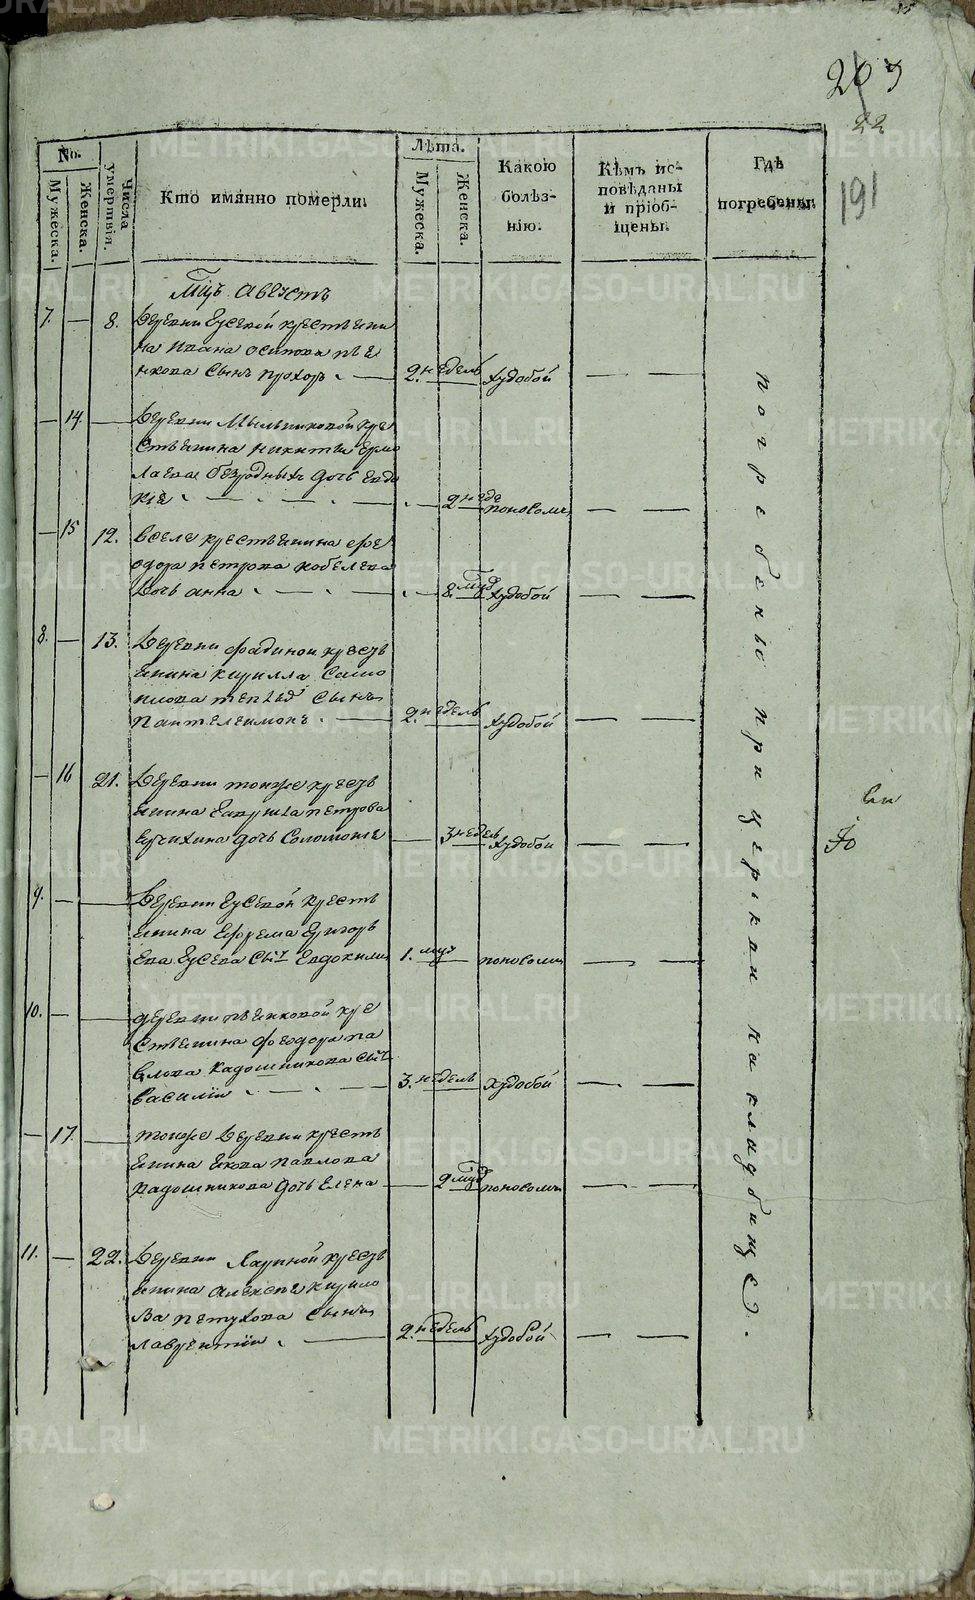 209
22
191
No.
Мужеска.
Женска.
Числа умертвія.
Кто имянно померли.
Лѣта.
Мужеска.
Женска.
Какою
болѣз-
нію.
Кѣмъ ис-
повѣданы
и пріоб-
щены.
Гдѣ
погребены.
Мцъ Августъ
7. — 8. Деревни Гусевой крестьяни
на Ивана Осипова пье
нкова сынъ Прохоръ — 2. недель худобой — —
— 14. — Деревни Мыльниковой кре
стьянина Никиты Ермо
лаева Безродныхъ дочь Евдо
кія — — — 2 неде поносомъ — —
— 15 12. Вселе крестьянина Фе
одора Петрова Кобелева
дочь Анна — — — 8. мцъ худобой — —
8. — 13. Деревни Фадиной кресть
янина Кирилла Само
илова сынъ
Пантелеимонъ — 2. недель худобой — —
— 16 21. Деревни тояже кресть
янина Петрова
дочь Соломонія — 3 недель худобой — —
9. — — Деревни Гусевой кресть
янина Ефрема Григорь
ева Гусева сынъ Евдокимъ 1. мцъ поносомъ — —
10. — — деревни пьянковой кре
стьянина Феодора па
влова Кадошникова сынъ
Василій — — 3. недель худобой — —
— 17. — тояже Деревни кресть
янина Якова Павлова
Кадошникова дочь Елена — 2 мцъ поносомъ — —
11. — 22. Деревни Лариной кресть
янина Алексея Кирило
ва Петухова сынъ
Лаврентій — 2. недель худобой — —
погребены при церькви на кладбище.
METRIKI.GASO-URAL.RU